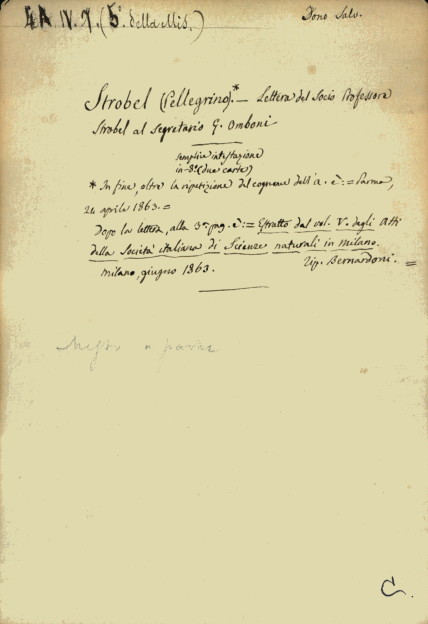 4A. IV. 7. (5° della Mis.)
Dono Salv.
Strobel (Pellegrino).* — Lettera del Socio Professore
Strobel al Segretario G. Omboni
semplice intestazione
in-8° (due carte)
* In fine, oltre la ripetizione del cognome dell'a. è: = Parma,
24 aprile 1863. =
Dopo la lettera, alla 3ª pag. è: = Estratto dal vol. V. degli Atti
della Società italiana di Scienze naturali in Milano.
Milano, giugno 1863. Tip. Bernardoni. =
C.